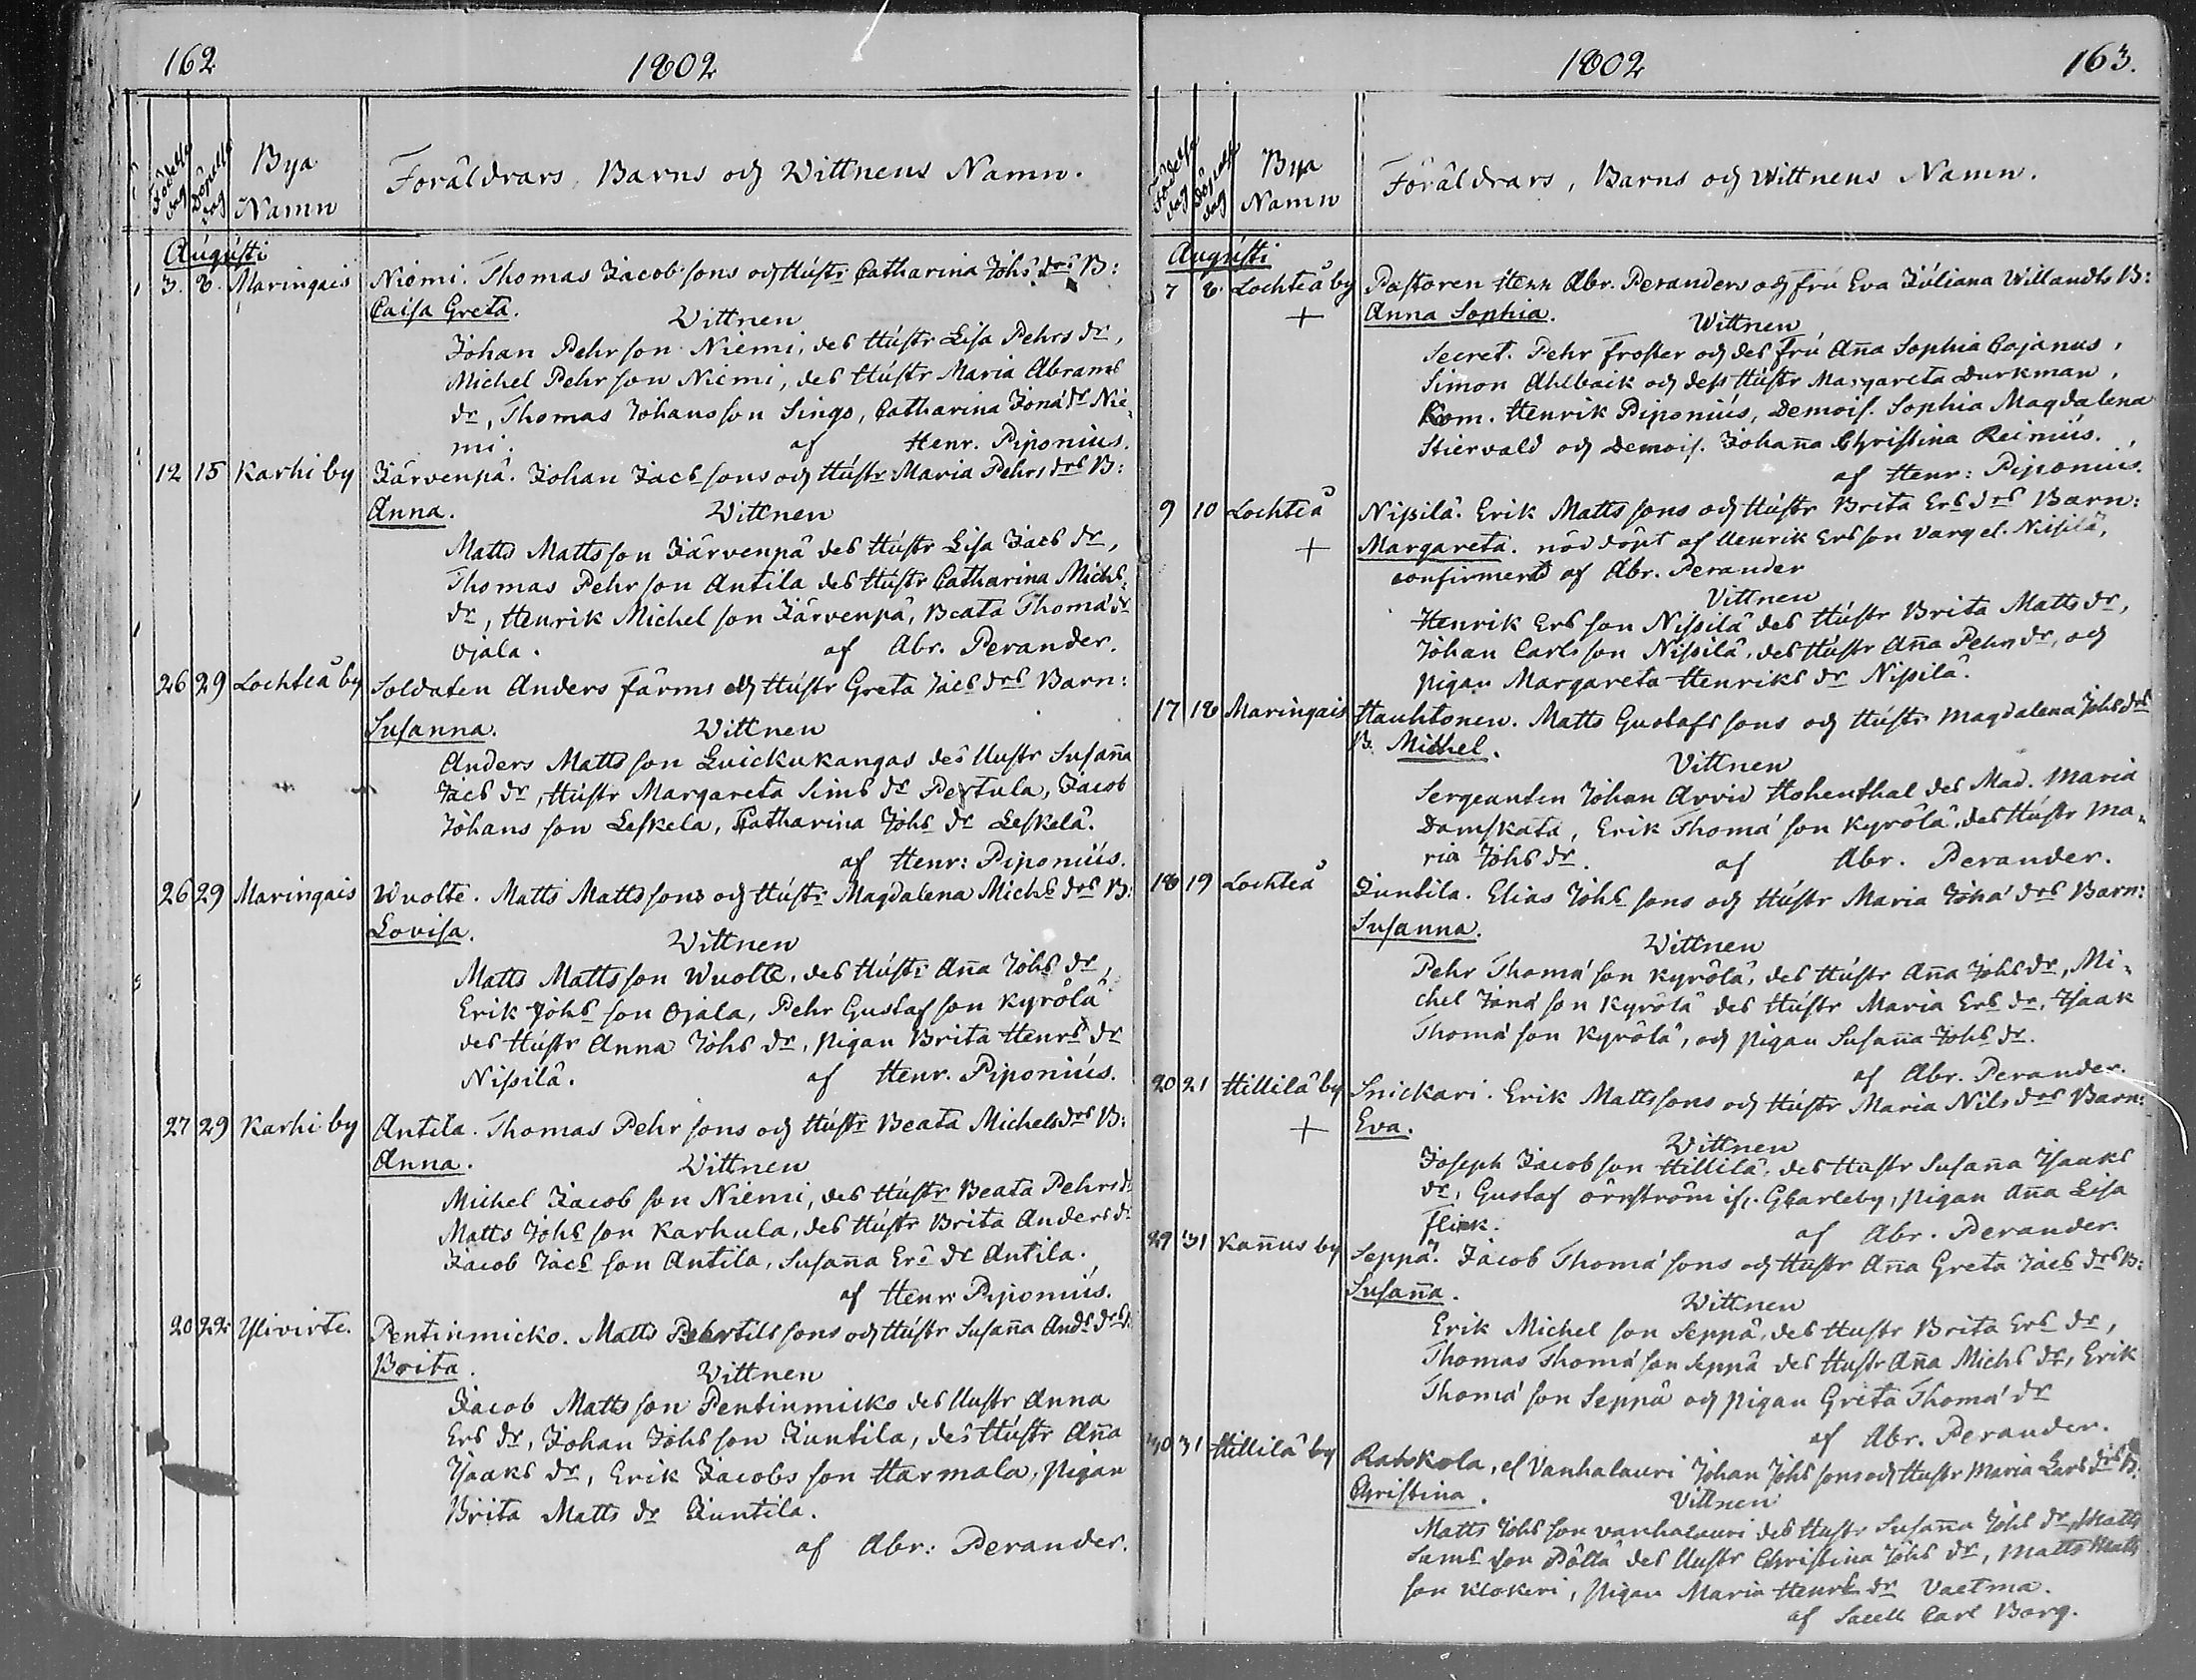 162
1802
Födelse dag
Döpelse dag
Bya Namn
Föräldrars, Barns och Wittnens Namn.
Augusti
3. 8. Maringais Niemi. Thomas Jacobsons och Hustr Catharina Johs drs B:
Caisa Greta. Wittnen
Johan Pehrson Niemi, des Hustr Lisa Pehrs dr,
Michel Pehrson Niemi, des Hustr Maria Abrams
dr, Thomas Johansson Singo, Catharina Jonæ dr Nie-
mi. af Henr. Piponius.
12 15 Karhi by Järvenpä. Johan Jacs sons och Hustr Maria Pehrs drs B:
Anna. Wittnen
Matts Mattsson Järvenpä des Hustr Lisa Jacs dr,
Thomas Pehrson Antila des Hustr Catharina Michs
dr, Henrik Michelson Järvenpä, Beata Thomæ dr
Ojala. af Abr. Perander.
26 29 Lochteå by Soldaten Anders Färms och Hustr Greta Jacs drs Barn:
Susanna. Wittnen
Anders Mattsson Luickukangas des Hustr Susaña
Jacs dr, Hustr Margareta Sims dr Pertula, Jacob
Johansson Leskela, Catharina Johs dr Leskelä.
af Henr: Piponius.
26 29 Maringais Wuolte. Matts Mattssons och Hustr Magdalena Michs drs B:
Lovisa. Wittnen
Matts Mattsson Wuolte, des Hustr Aña Johs dr,
Erik Johs son Ojala, Pehr Gustafson Kyrölä
des Hustr Anna Johs dr, Pigan Brita Henrs dr
Nissilä. af Henr. Piponius.
27 29 Karhi by Antila. Thomas Pehrsons och Hustr Beata Michels drs B:
Anna. Wittnen
Michel Jacobson Niemi, des Hustr Beata Pehrs dr
Matts Johs son Karhula, des Hustr Brita Anders dr
Jacob Jacs son Antila, Susaña Ers dr Antila.
af Henr Piponius.
20 22 Ylivirte. Pentinmicko. Matts Bertillsons och Hustr Susaña Ands drs B:
Brita. Wittnen
Jacob Mattsson Pentinmicko des Hustr Anna
Ers dr, Johan Johs son Juntila, des Hustr Aña
Isaaks dr, Erik Jacobsson Harmala, Pigan
Brita Matts dr Juntila.
af Abr: Perander.
1802
163.
Födelse dag
Döpelse dag
Bya Namn
Föräldrars, Barns och Wittnens Namn.
Augusti
7 8 Lochteå by Pastoren Herr Abr. Peranders och fru Eva Juliana Willandts B:
+ Anna Sophia. Wittnen
Secret. Pehr Froster och des fru Aña Sophia Cajanus,
Simon Ahlbäik och dess Hustr Margareta Durkman,
Kom. Henrik Piponius, Demois. Sophia Magdalena
Stiervald och Demois. Johaña Christina Reinius.
af Henr: Piponius.
9 10 Lochteå Nissilä. Erik Mattssons och Hustr Brita Ers drs Barn:
+ Margareta. nöd döpt af Henrik Ersson Varg el. Nissilä,
confirmerd af Abr. Perander
Vittnen
Henrik Ers son Nissilä des Hustr Brita Matts dr,
Johan Carlsson Nissilä, des Hustr Aña Pehrs dr, och
Pigan Margareta Henriks dr Nissilä.
17 18 Maringais Hauhtonen. Matts Gustafssons och Hustr Magdalena Johs drs
B. Michel. Vittnen
Sergeanten Johan Arvid Hohenthal des Mad. Maria
Damskata, Erik Thomæ son Kyrölä, des Hustr Ma-
ria Johs dr. af Abr. Perander.
18 19 Lochteå Juntila. Elias Johs sons och Hustr Maria Johæ drs Barn:
Susanna. Wittnen
Pehr Thomæ son Kyrölä, des Hustr Aña Johs dr, Mi-
chel Jonæ son Kyrölä des Hustr Maria Ers dr, Isaak
Thomæ son Kyrölä, och Pigan Susaña Johs dr.
af Abr. Perander.
20 21 Hillilä by Snickari. Erik Mattssons och Hustr Maria Nils drs Barn:
+ Eva. Wittnen
Joseph Jacobson Hillilä, des Hustr Susaña Isaaks
dr, Gustaf Örnström if. Gkarleby, Pigan Aña Lisa
Flink. af Abr. Perander.
29 31 Kañus by Seppä. Jacob Thomæ sons och Hustr Aña Greta Jacs drs B:
Susaña. Wittnen
Erik Michelson Seppä, des Hustr Brita Ers dr,
Thomas Thomæ son Seppä des Hustr Aña Michs dr, Erik
Thomæ son Seppä och Pigan Greta Thomæ dr
af Abr. Perander.
30 31 Hillilä by Ratskola, el Vanhalauri Johan Johs sons och Hustr Maria Lars drs B:
Christina. Vittnen
Matts Johs son Vanhalauri des Hustr Susaña Johs dr, Matts
Sams son Pöllä des Hustr Christina Johs dr, Matts Matts
son Klokeri, Pigan Maria Henrs dr Vaetma.
af Sacell Carl Borg.